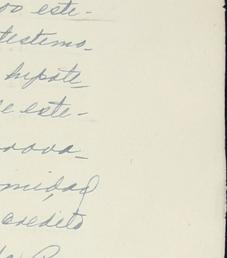 este-
testimo-
hipote-
e este-
nova-
midad
credito